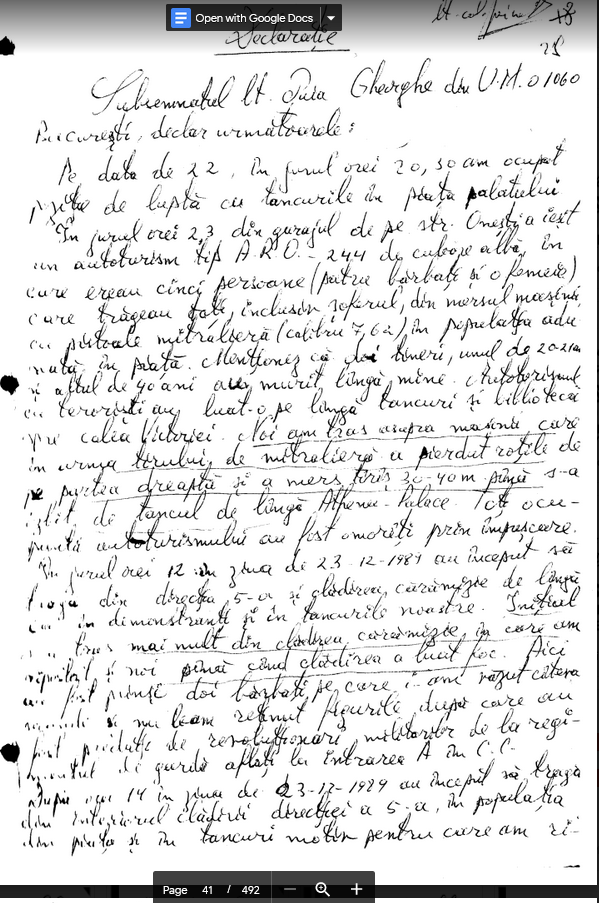 Open with Google Docs
lt. col.
28
Declarație
Subsemnatul lt. Gheorghe din U.M. 01060
București, declar următoarele:
Pe data de 22, în jurul orei 20,30 am ocupat
poziție de luptă cu tancurile în piața palatului
În jurul orei 23 din garajul de pe str. Onești a ieșit
un autoturism tip A.R.O. - 244 de culoare albă, în
care ereau cinci persoane (patru bărbați și o femeie)
care trăgeau toți, inclusiv șoferul, din mersul mașinii
cu pistoale mitralieră (calibru 7,62), în populația adu-
nată în piață. Menționez că doi tineri, unul de 20-21 ani
și altul de 40 ani au murit lîngă mine. Autoturismul
cu teroriști au luat-o pe lîngă tancuri și biblioteca
spre calea Victoriei. Noi am tras asupra mașinii care
în urma tirului de mitralieră a pierdut roțile de
pe partea dreaptă și a mers tîrîș 30-40m pînă s-a
izbit de tancul de lîngă Athenee-Palace. Toți ocu-
panții autoturismului au fost omorîți prin împușcare.
În jurul orei 12 în ziua de 23.12-1989 au început să
tragă din direcția 5-a și clădirea cărămizie de lîngă
în demonstranți și în tancurile noastre. Inițial
s-a tras mai mult din clădirea cărămizie, în care am
ripostat și noi pînă cînd clădirea a luat foc. Aici
au fost prinși doi bărbați, pe care i-am văzut cîteva
și nu le-am reținut figurile, după care au
fost predați de revoluționari militarilor de la regi-
mentul de gardă aflați la intrarea A în C.C.
După ora 14 în ziua de 23-12-1989 au început să tragă
din interiorul clădirii direcției a 5-a, în populația
din piață și în tancuri motiv pentru care am ri-
Page 41 / 492